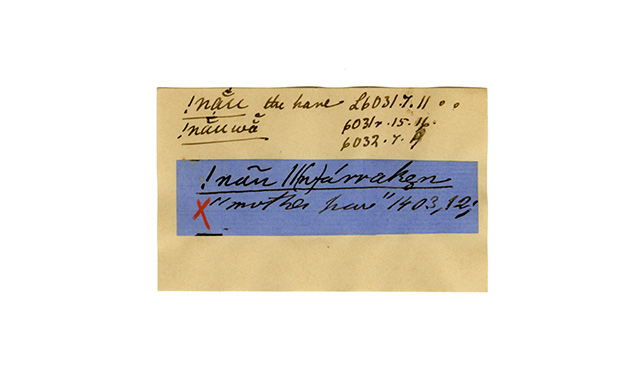 !nău the hare L6031.7.11 ..
!năuwă 6031v.15.16.
6032.7.9
!nãu ||(n)árraken
X "mother hare" 1403,12;